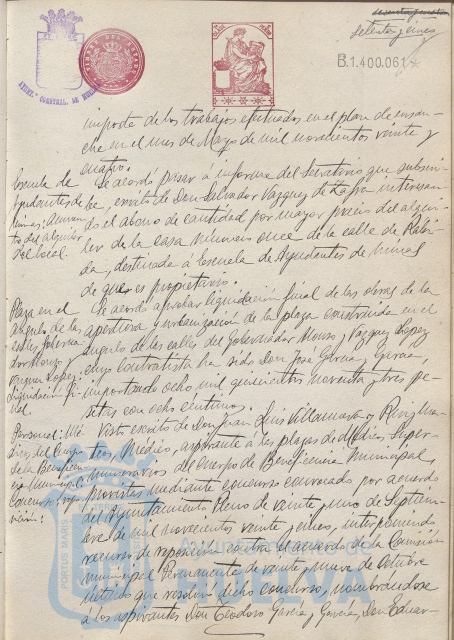 setenta y cinco
B.1.400.061
importe de los trabajos efectuados en el plan de ensan-
che en el mes de Mayo de mil novecientos veinte y
cuatro.
Escuela de
Ayudantes de
Minas: Aumen-
to del alquiler
del local.
Se acordó pasar a informe del Secretario que subscri-
be, escrito de Don Salvador Vazquez de Zafra, interesan-
do el abono de cantidad por mayor precio del alqui-
ler de la casa número once de la calle de Rábi-
da, destinada á Escuela de Ayudantes de minas
de que es propietario.
Plaza en el
angulo de las
calles Goberna
dor Alonso y
Vazquez Lopez:
Liquidación fi-
nal
Se acordó aprobar liquidación final de las obras de la
apertura y urbanización de la plaza construida en el
angulo de las calles del Gobernador Alonso y Vazquez Lopez
cuyo contratista ha sido Don José Garcia y Garcia,
importando ocho mil quinientas noventa y tres pe-
setas con ocho centimos.
Personal: Mé-
dicos del Cuerpo
de la Beneficen-
cia Municipal:
Concurso:
Visto escrito de Don Juan Luis Villanueva y Ruiz Ma-
teos, Médico, aspirante á las plazas de Médicos Super-
numerarios del Cuerpo de Beneficencia Municipal,
provistas mediante concurso convocado por acuerdo
del Ayuntamiento Pleno de veinte y uno de Septiem-
bre de mil novecientos veinte y cinco, interponiendo
recurso de reposición contra el acuerdo de la Comisión
municipal Permanente de veinte y nueve de Octubre
último que resolvió dicho concurso, nombrandose
á los aspirantes Don Teodoro Garcia y Garcia, Don Eduar-
PORTUS MARIS
Ayuntamiento de
HUELVA